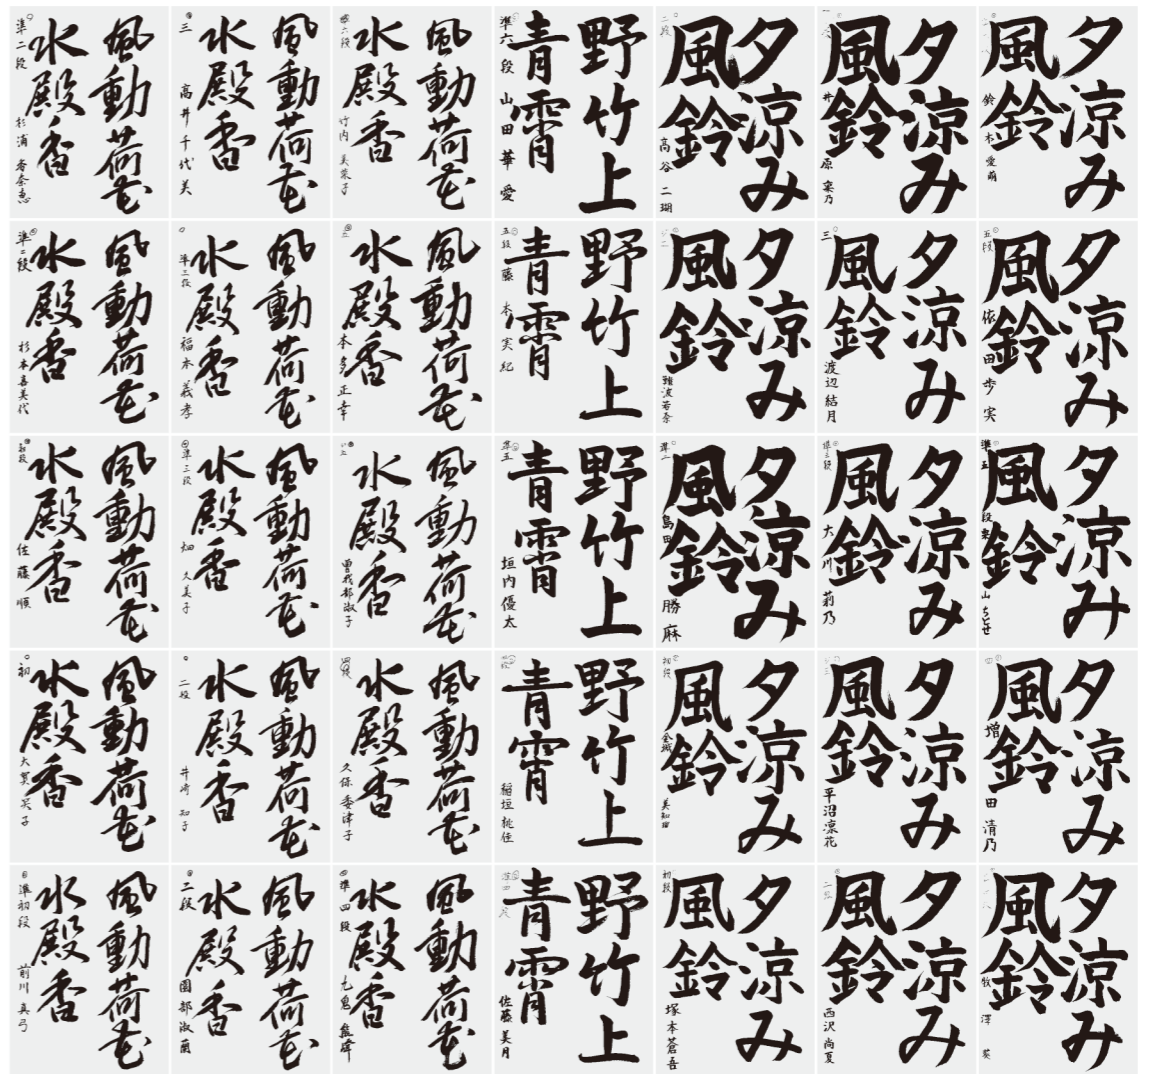 夕涼み
風鈴
鈴木愛萌
夕涼み
風鈴
井原乃
夕涼み
風鈴
二段 高谷二瑚
野竹上
青霄
準六段 山田華愛
風動荷花
水殿香
六段 竹内美菜子
風動荷花
水殿香
三 高井千代美
風動荷花
水殿香
準二段 杉浦香奈恵
夕涼み
風鈴
五段 依田歩実
夕涼み
風鈴
三 渡辺結月
夕涼み
風鈴
難波若奈
野竹上
青霄
五段 藤本実紀
風動荷花
水殿香
五 本多正幸
風動荷花
水殿香
準三段 福本義孝
風動荷花
水殿香
準二段 杉本喜美代
夕涼み
風鈴
準五段 栗山ちとせ
夕涼み
風鈴
準三段 大川莉乃
夕涼み
風鈴
準二 島田勝麻
野竹上
青霄
準五 垣内優太
風動荷花
水殿香
曽我部淑子
風動荷花
水殿香
準三段 畑久美子
風動荷花
水殿香
初段 佐藤順
夕涼み
風鈴
四 増田清乃
夕涼み
風鈴
平沼凛花
夕涼み
風鈴
初段 金城美知瑠
野竹上
青霄
稲垣桃佳
風動荷花
水殿香
四段 久保委津子
風動荷花
水殿香
二段 井湾知子
風動荷花
水殿香
初 大賀英子
夕涼み
風鈴
牧澤葵
夕涼み
風鈴
二段 西沢尚夏
夕涼み
風鈴
初段 塚本蒼吾
野竹上
青霄
佐藤美月
風動荷花
水殿香
準四段 九鬼
風動荷花
水殿香
二段 園部淑蘭
風動荷花
水殿香
準初段 前川真弓